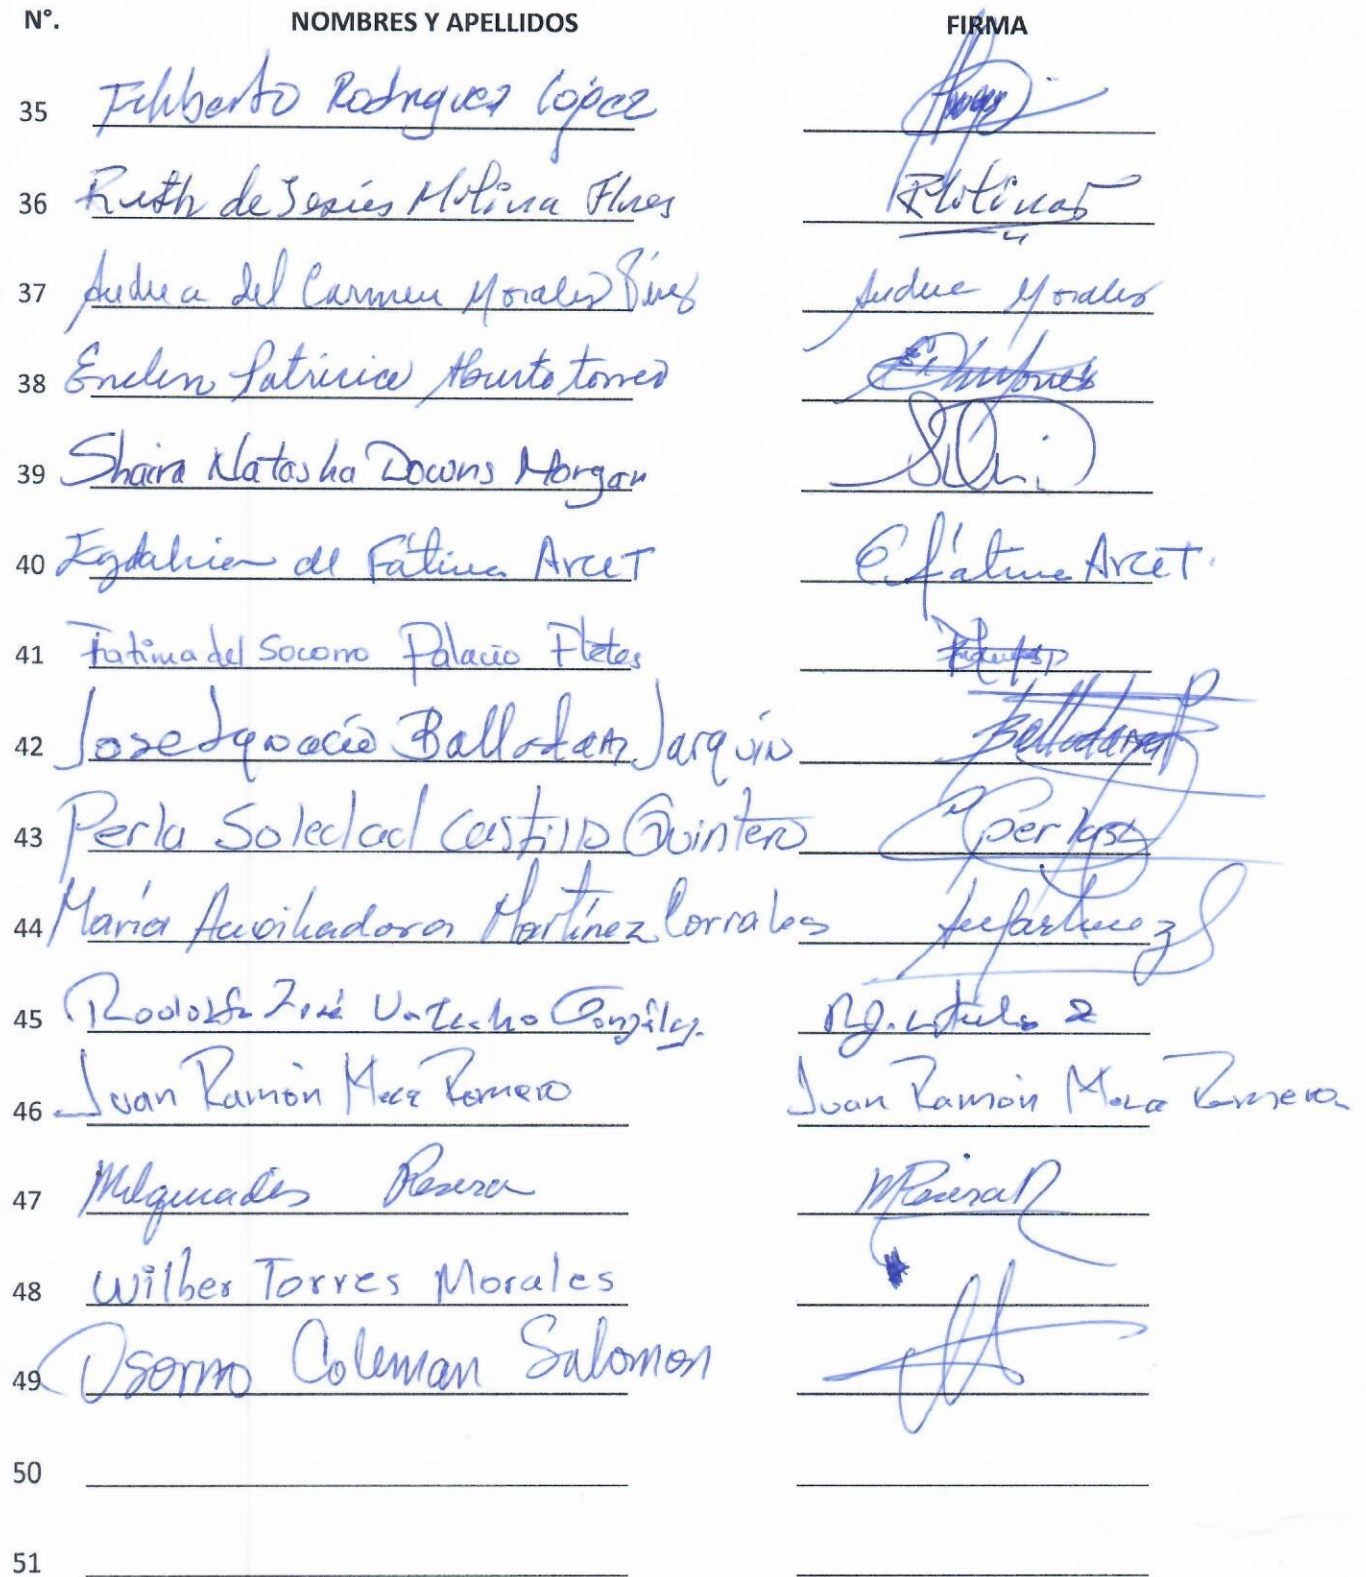 N°. NOMBRES Y APELLIDOS FIRMA
35 Filiberto Rodriguez López
36 Ruth de Jesús Molina Flores
37 Andrea del Carmen Morales Pérez Andrea Morales
38 Patricia Aburto torres
39 Shaira Natasha Downs Morgan
40 de Fátima Arcet E. fátima Arcet.
41 Fatima del Socorro Palacio Fletes
42 Jose Ignacio Balladarez Jarquín
43 Perla Soledad Castillo Quintero
44 María Auxiliadora Martínez Corrales
45 Rodolfo José González.
46 Juan Ramón Romero Juan Ramón Romero
47 Melquiades
48 Wilber Torres Morales
49 Osorno Coleman Salomon
50
51